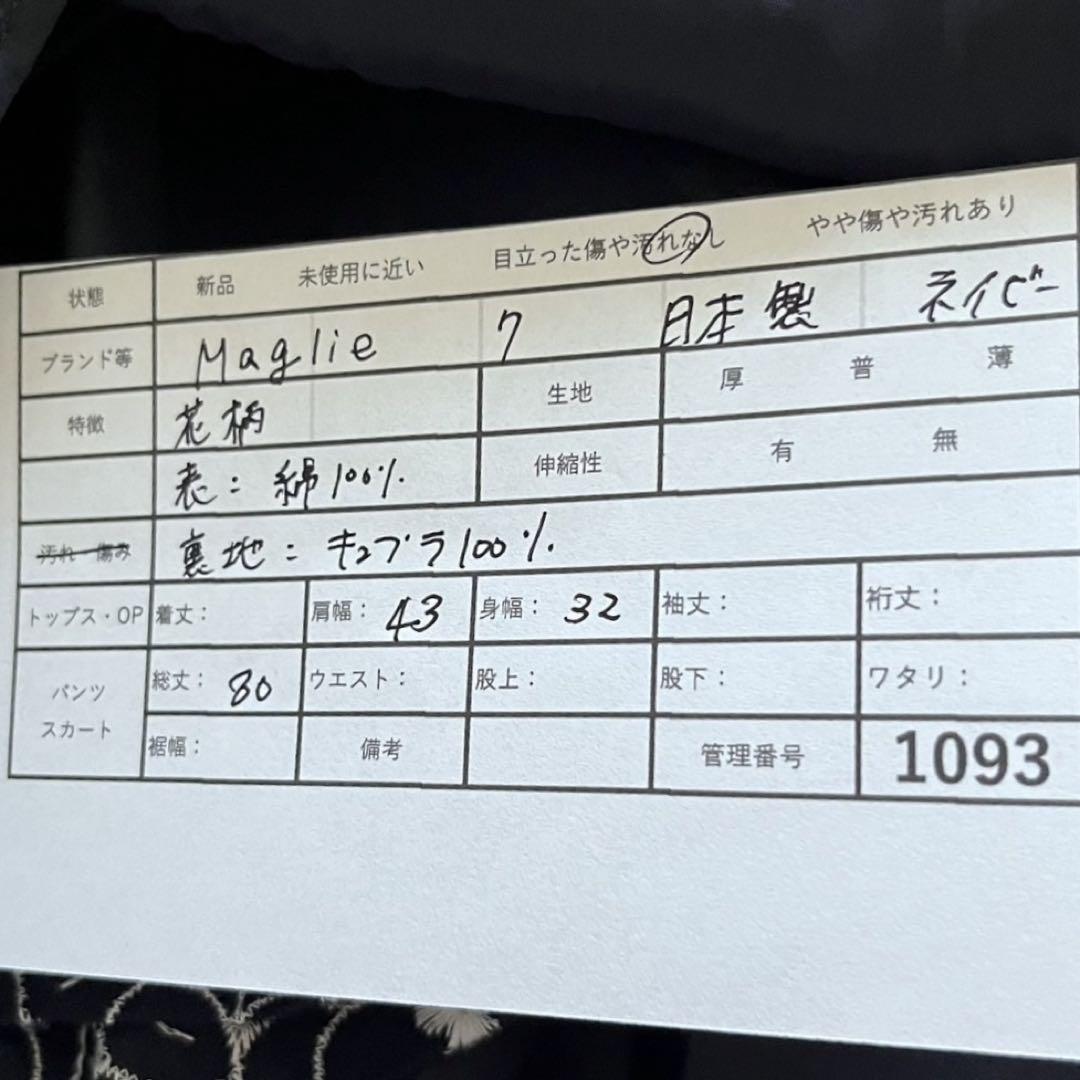 状態 新品 未使用に近い 目立った傷や汚れなし やや傷や汚れあり
ブランド等 Maglie 7 日本製 ネイビー
特徴 花柄 生地 厚 普 薄
表：綿100% 伸縮性 有 無
汚れ・傷み 裏地：キュプラ100%
トップス・OP 着丈： 肩幅：43 身幅：32 袖丈： 裄丈：
パンツ スカート 総丈：80 ウエスト： 股上： 股下： ワタリ：
裾幅： 備考 管理番号 1093